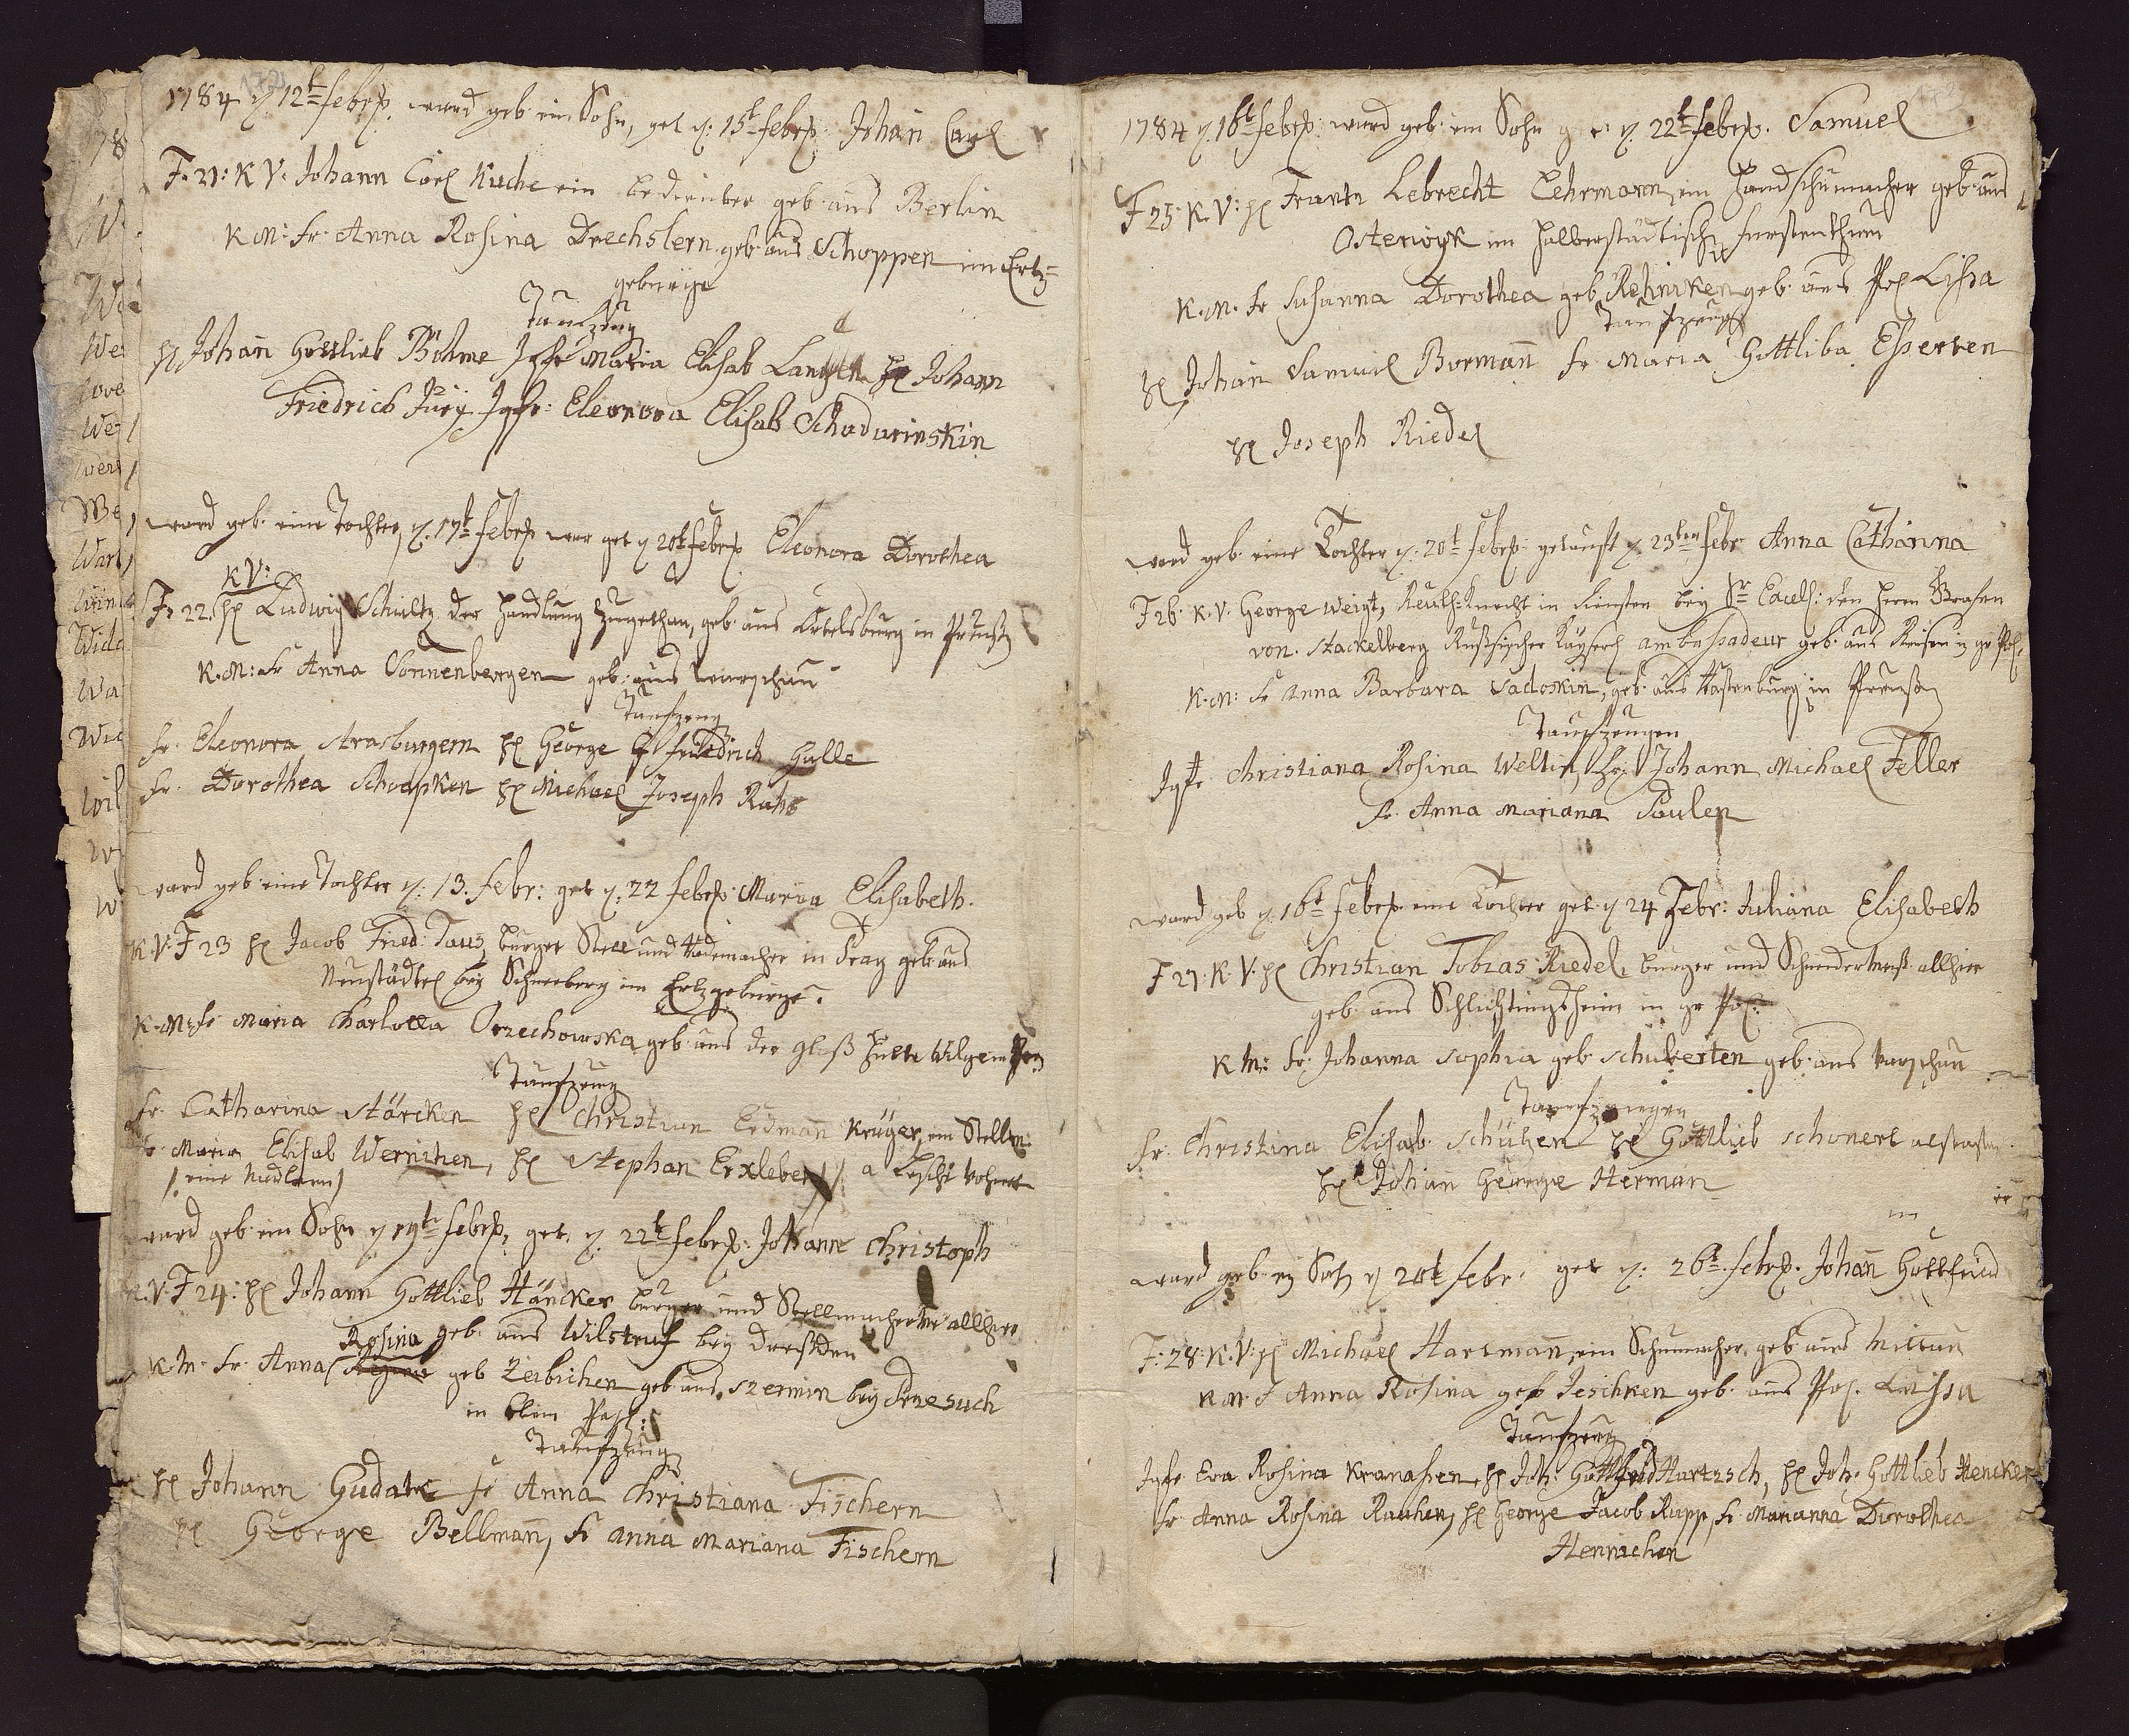 1784 d. 12t Febr. ward geb. ein Sohn, get d: 15t Febr: Johan Carl
F. 21: K V. Johann Carl Kuche ein bedienter geb. aus Berlin
K. M: Fr. Anna Rosina Drechslern geb. aus Schoppen im Ertz=
gebürge
Taufzeug
H. Johan Gottlieb Böhme Jgfr Maria Elisab Langen H Johann
Friedrich Jury Jgfr: Eleonora Elisab Schadarinskin
ward geb. eine Tochter, d. 17t Febr war get d 20t Febr Eleonora Dorothea
K V:
F. 22. H Ludwig Schultz der Handlung zugethan, geb. aus Ortelsburg in Preuß
K. M: Fr Anna Sonnenbergen geb: aus Warschau
Taufzeug
Fr. Eleonora Strasburgern H George Friedrich Halle
Fr. Dorothea Schoapken H Michael Joseph Rahts
ward geb. eine Tochter d: 13. Febr: get d. 22 Febr: Maria Elisabeth.
K. V. F 23 H Jacob Fried: Taus burger Stell und Rademacher in Prag geb. aus
Neustädtel bey Schneeberg im Ertzgebürge.
K. M. Fr Maria Charlotta Orzechowska geb. aus der Glaß Hütte Wilge in
Taufzeug
Fr. Catharina Stärcken H Christian Erdmañ Krüger, ein Stellm:
Fr. Maria Elisab Wernitzen, H Stephan Erxleben
ward geb. ein Sohn d 19t Febr, get. d. 22t Febr: Johann Christoph
K. V. F 24: H Johann Gottlieb Häncker burger und Stellmacher allhier
geb. aus Wilstruf bey Dreßden
Rosina
K. M. Fr. Anna geb Zeibichen geb. aus Szermin bey
in klein Pohl:
Taufzeug
H Johann Gudatt Fr Anna Christiana Fischern
H George Bellmañ, Fr Anna Mariana Fischern
1784 d. 16t Febr: ward geb: ein Sohn get: d. 22t Febr. Samuel
F 25. K. V: H Frantz Lebrecht Lehrmann, ein Handschumacher geb. aus
Osterwyk im Halberstädtisch Furstenthum
K. M. Fr Susanna Dorothea geb Rehniken geb. aus Pol Lissa
Taufzeug
H Johan Samuel Bormañ Fr Maria Gottliba Esserten
H Joseph Riedel
ward geb. eine Tochter d. 20t Febr: getauft d 23ten Febr Anna Catharina
F 26. K. V. George Weigt, Reuth=Knecht in Diensten bey Sr Excell: den Herrn Grafen
von Stackelberg Rußischer Kayserl ambassadeur geb. aus Reisen in gr Pol,
K. M: Fr Anna Barbara Sadoskin, geb. aus Rastenburg in Preuß
Taufzeugen
Jgfr. Christiana Rosina Weltin, H Johann Michael Feller
Fr. Anna Mariana Paulen
ward geb d. 16t Febr. eine Tochter get d 24 Febr: Juliana Elisabeth
F 27. K. V. H Christian Tobias Riedel, burger und Schneidermstr allhier
geb. aus Schlichtingsheim in gr Pol.
K M: Fr: Johanna Sophia geb. Schuberten geb. aus Warschau
Taufzeugen
Fr. Christina Elisab. Schützen H Gottlieb Schonert
H Johan George Herman
ward geb. ein Sohn d 20t Febr. get d: 26t Febr. Johañ Gottfried
F. 28. K. V. H Michael Hartmañ, ein Schumacher, geb aus Mittau
K M. F Anna Rosina geb Jeschken geb. aus Pol. Lissa
Taufzeug
Jgfr Eva Rosina Kranasen, H Joh: Gottfried Hartzsch, H Joh. Gottlieb Hencker
Fr. Anna Rosina Rauhen, H George Jacob Rapp, Fr. Marianna Dorothea
Hennichen